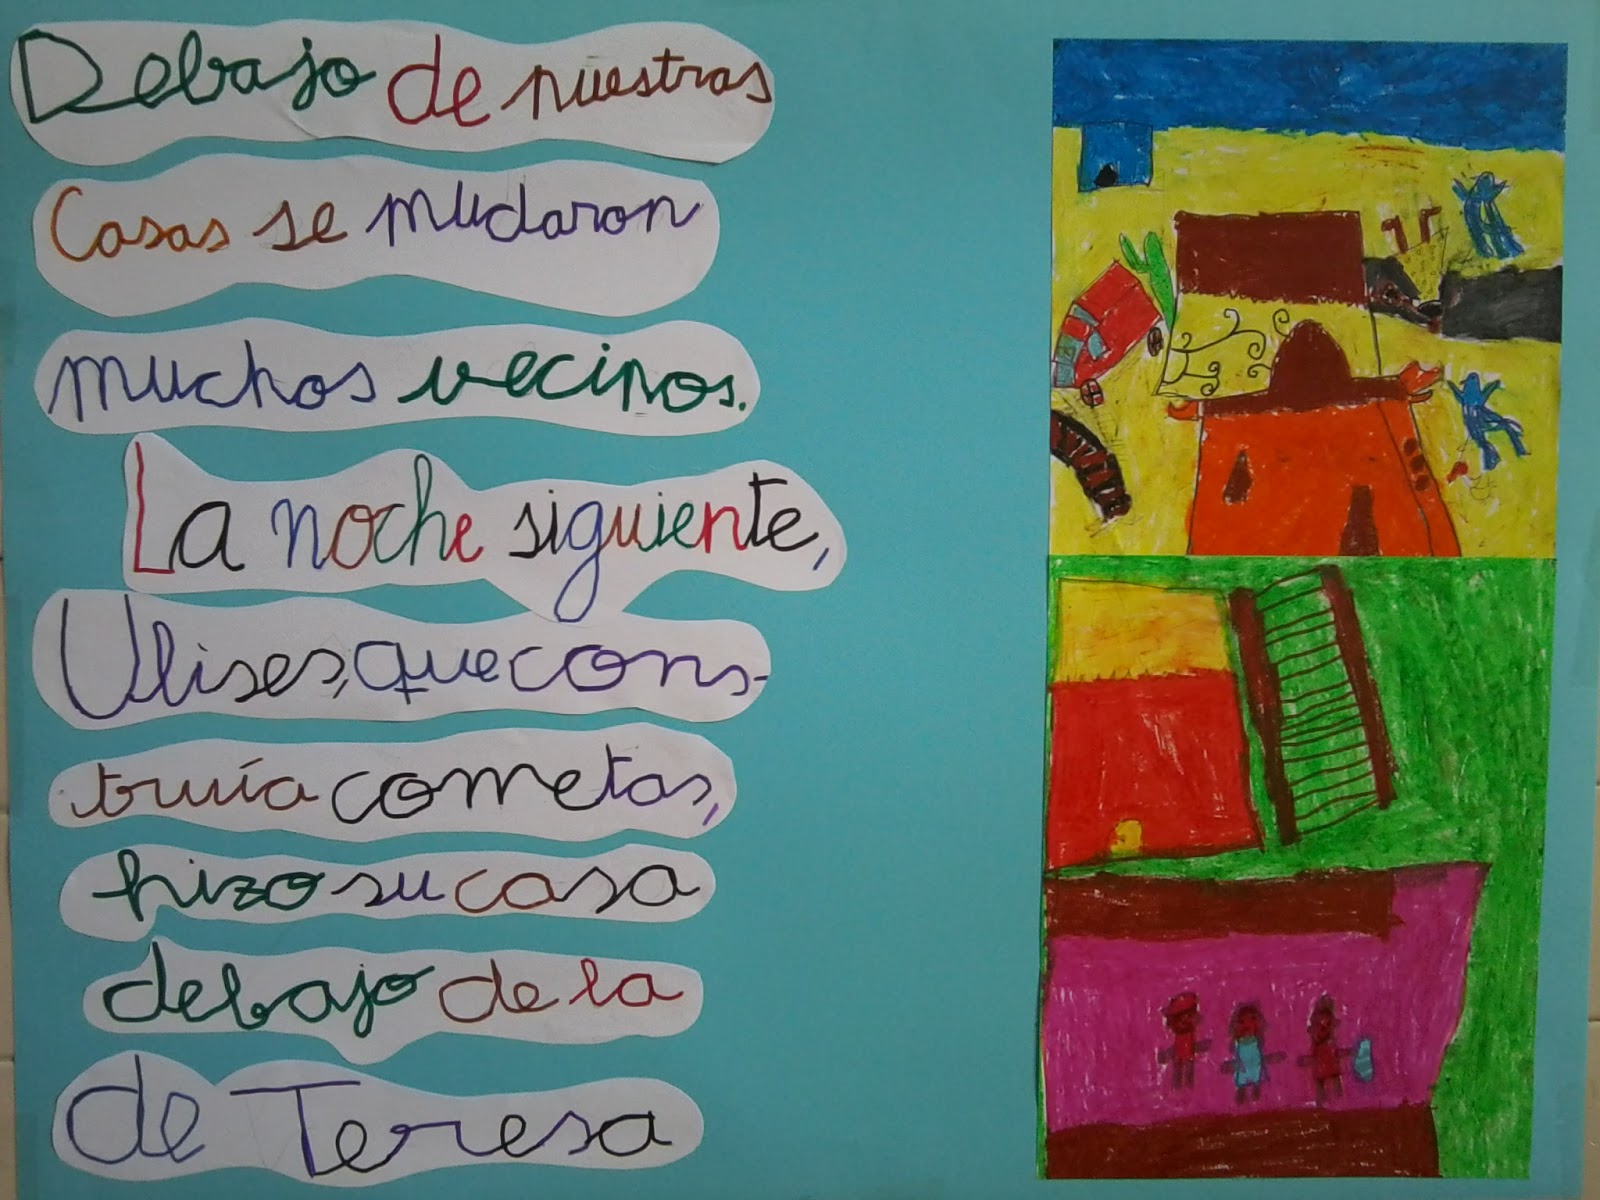 Debajo de nuestras
Casas se mudaron
muchos vecinos.
La noche siguiente,
Ulises, que cons-
truía cometas,
hizo su casa
debajo de la
de Teresa